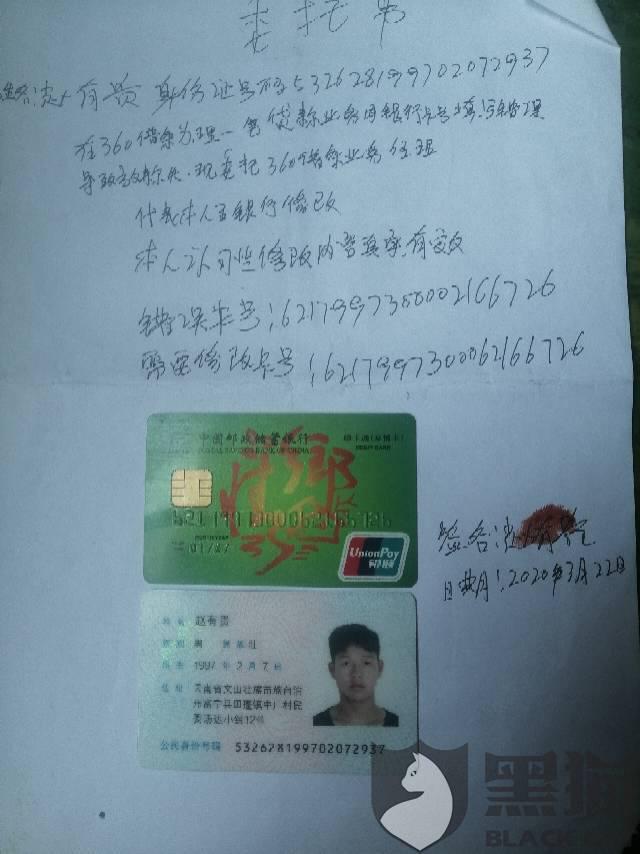 委托书
有贵 身份证号码532628199702072937
在360借条办理一笔贷款业务因银行卡号填写错误
导致放款失,现委托360借条业务经理
代表本人至银行修改
本人认可此修改内容真实有效
错误卡号:
需要修改卡号:6217997300062166726
中国邮政储蓄银行
POSTAL SAVINGS BANK OF CHINA
乡
01/27
UnionPay
银联
签名 有贵
日期:2020年3月22日
姓名 赵有贵
性别 男 民族 壮
出生 1997 年 2 月 7 日
住址 云南省文山壮族苗族自治
州富宁县田蓬镇
12号
公民身份号码 532628199702072937
黑猫
BLACK